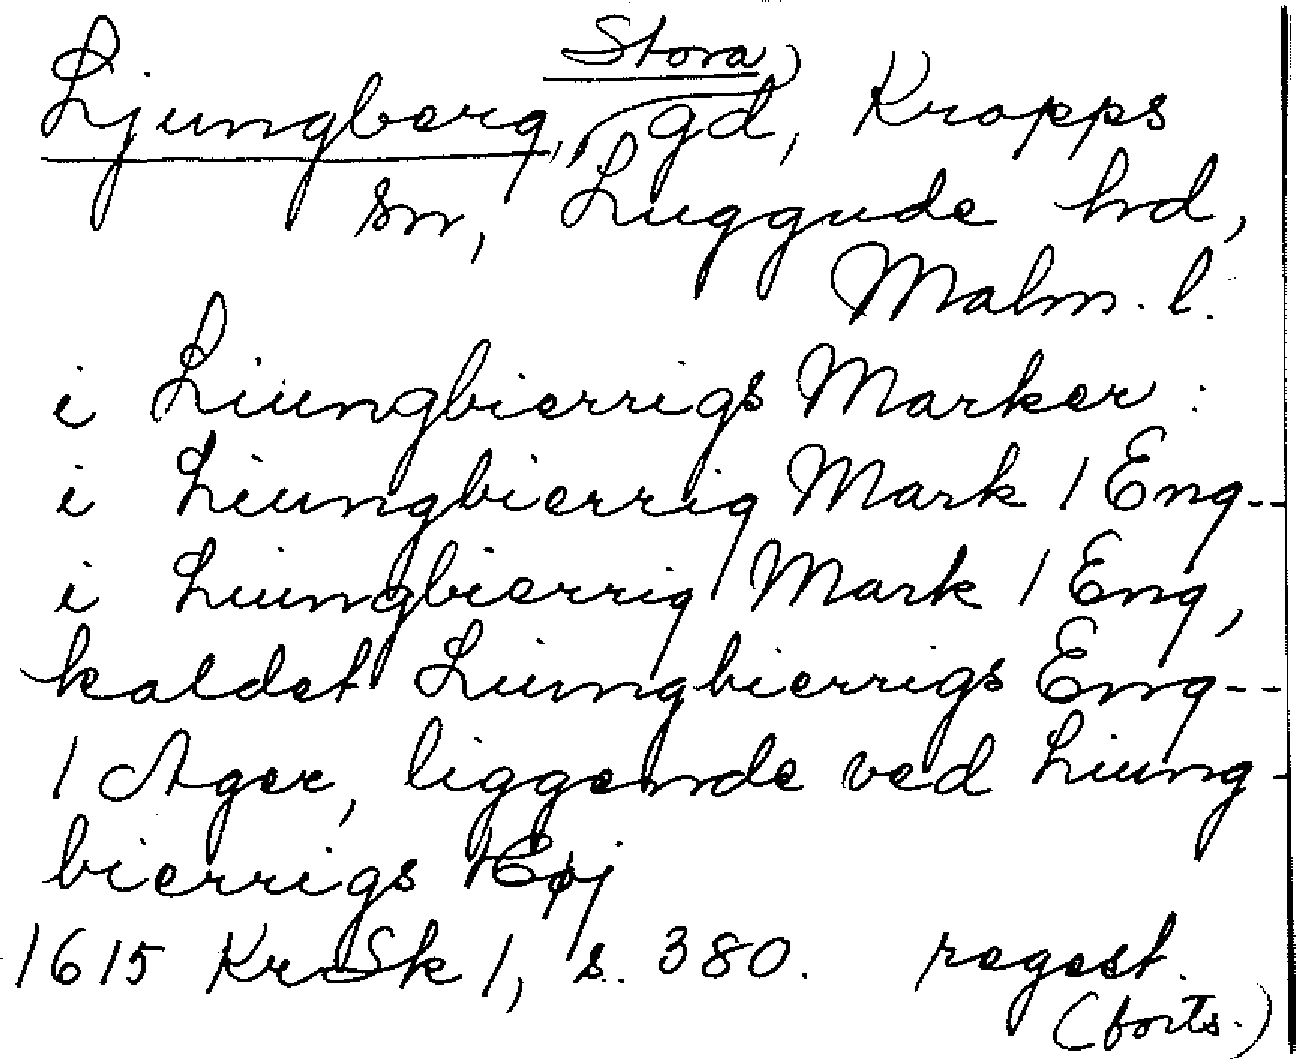 Ljungberg, Stora, gd, Kropps
sn, Luggude hd,
Malm. l.
i Liungbierrigs Marker:
i Liungbierrig Mark 1 Eng--
i Liungbierrig Mark 1 Eng,
kaldet Liungbierrigs Eng--
1 Ager, liggende ved Liung-
bierrigs Eøj
1615 KrSk 1, s. 380. regest.
(forts.)